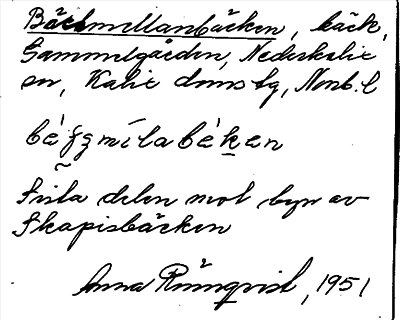 Bäckmellanbäcken, bäck,
Gammelgården, Nederkalix
sn, Kalix domstg, Nonb. l
bèʒmílabèken
Sista delen mot byn av
Skapisbäcken
Anna Rönnqvist, 1951